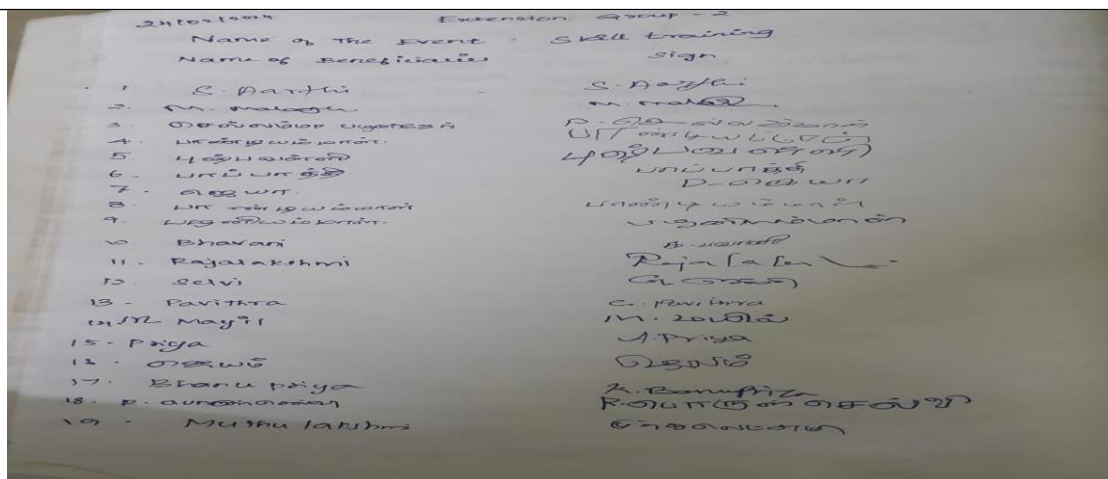 24/02/2024 Extension Group - 2
Name of the Event : Skill training
Name of Beneficiaries Sign
1. S. Aarthi S. Aarthi
2. M. M.
3. செல்லம்மா P.
4. பாண்டியம்மாள்.
5. புஷ்பவள்ளி புஷ்பவள்ளி
6. பாப்பாத்தி பாப்பாத்தி
7. ஜெயா. P. ஜெயா
8. பாண்டியம்மாள் பாண்டியம்மாள்
9. பழனியம்மாள். பழனியம்மாள்
10 Bhavani பவானி
11. Rajalakshmi
12. Selvi
13 - Pavithra C. Pavithra
14 Mayil M. மயில்
15 - Priya A. Priya
16. ஜெயம் ஜெயம்
17. Bhanu priya K. Banupriya
18. P. P. பொருள் செல்வி
19. Muthu lakshmi